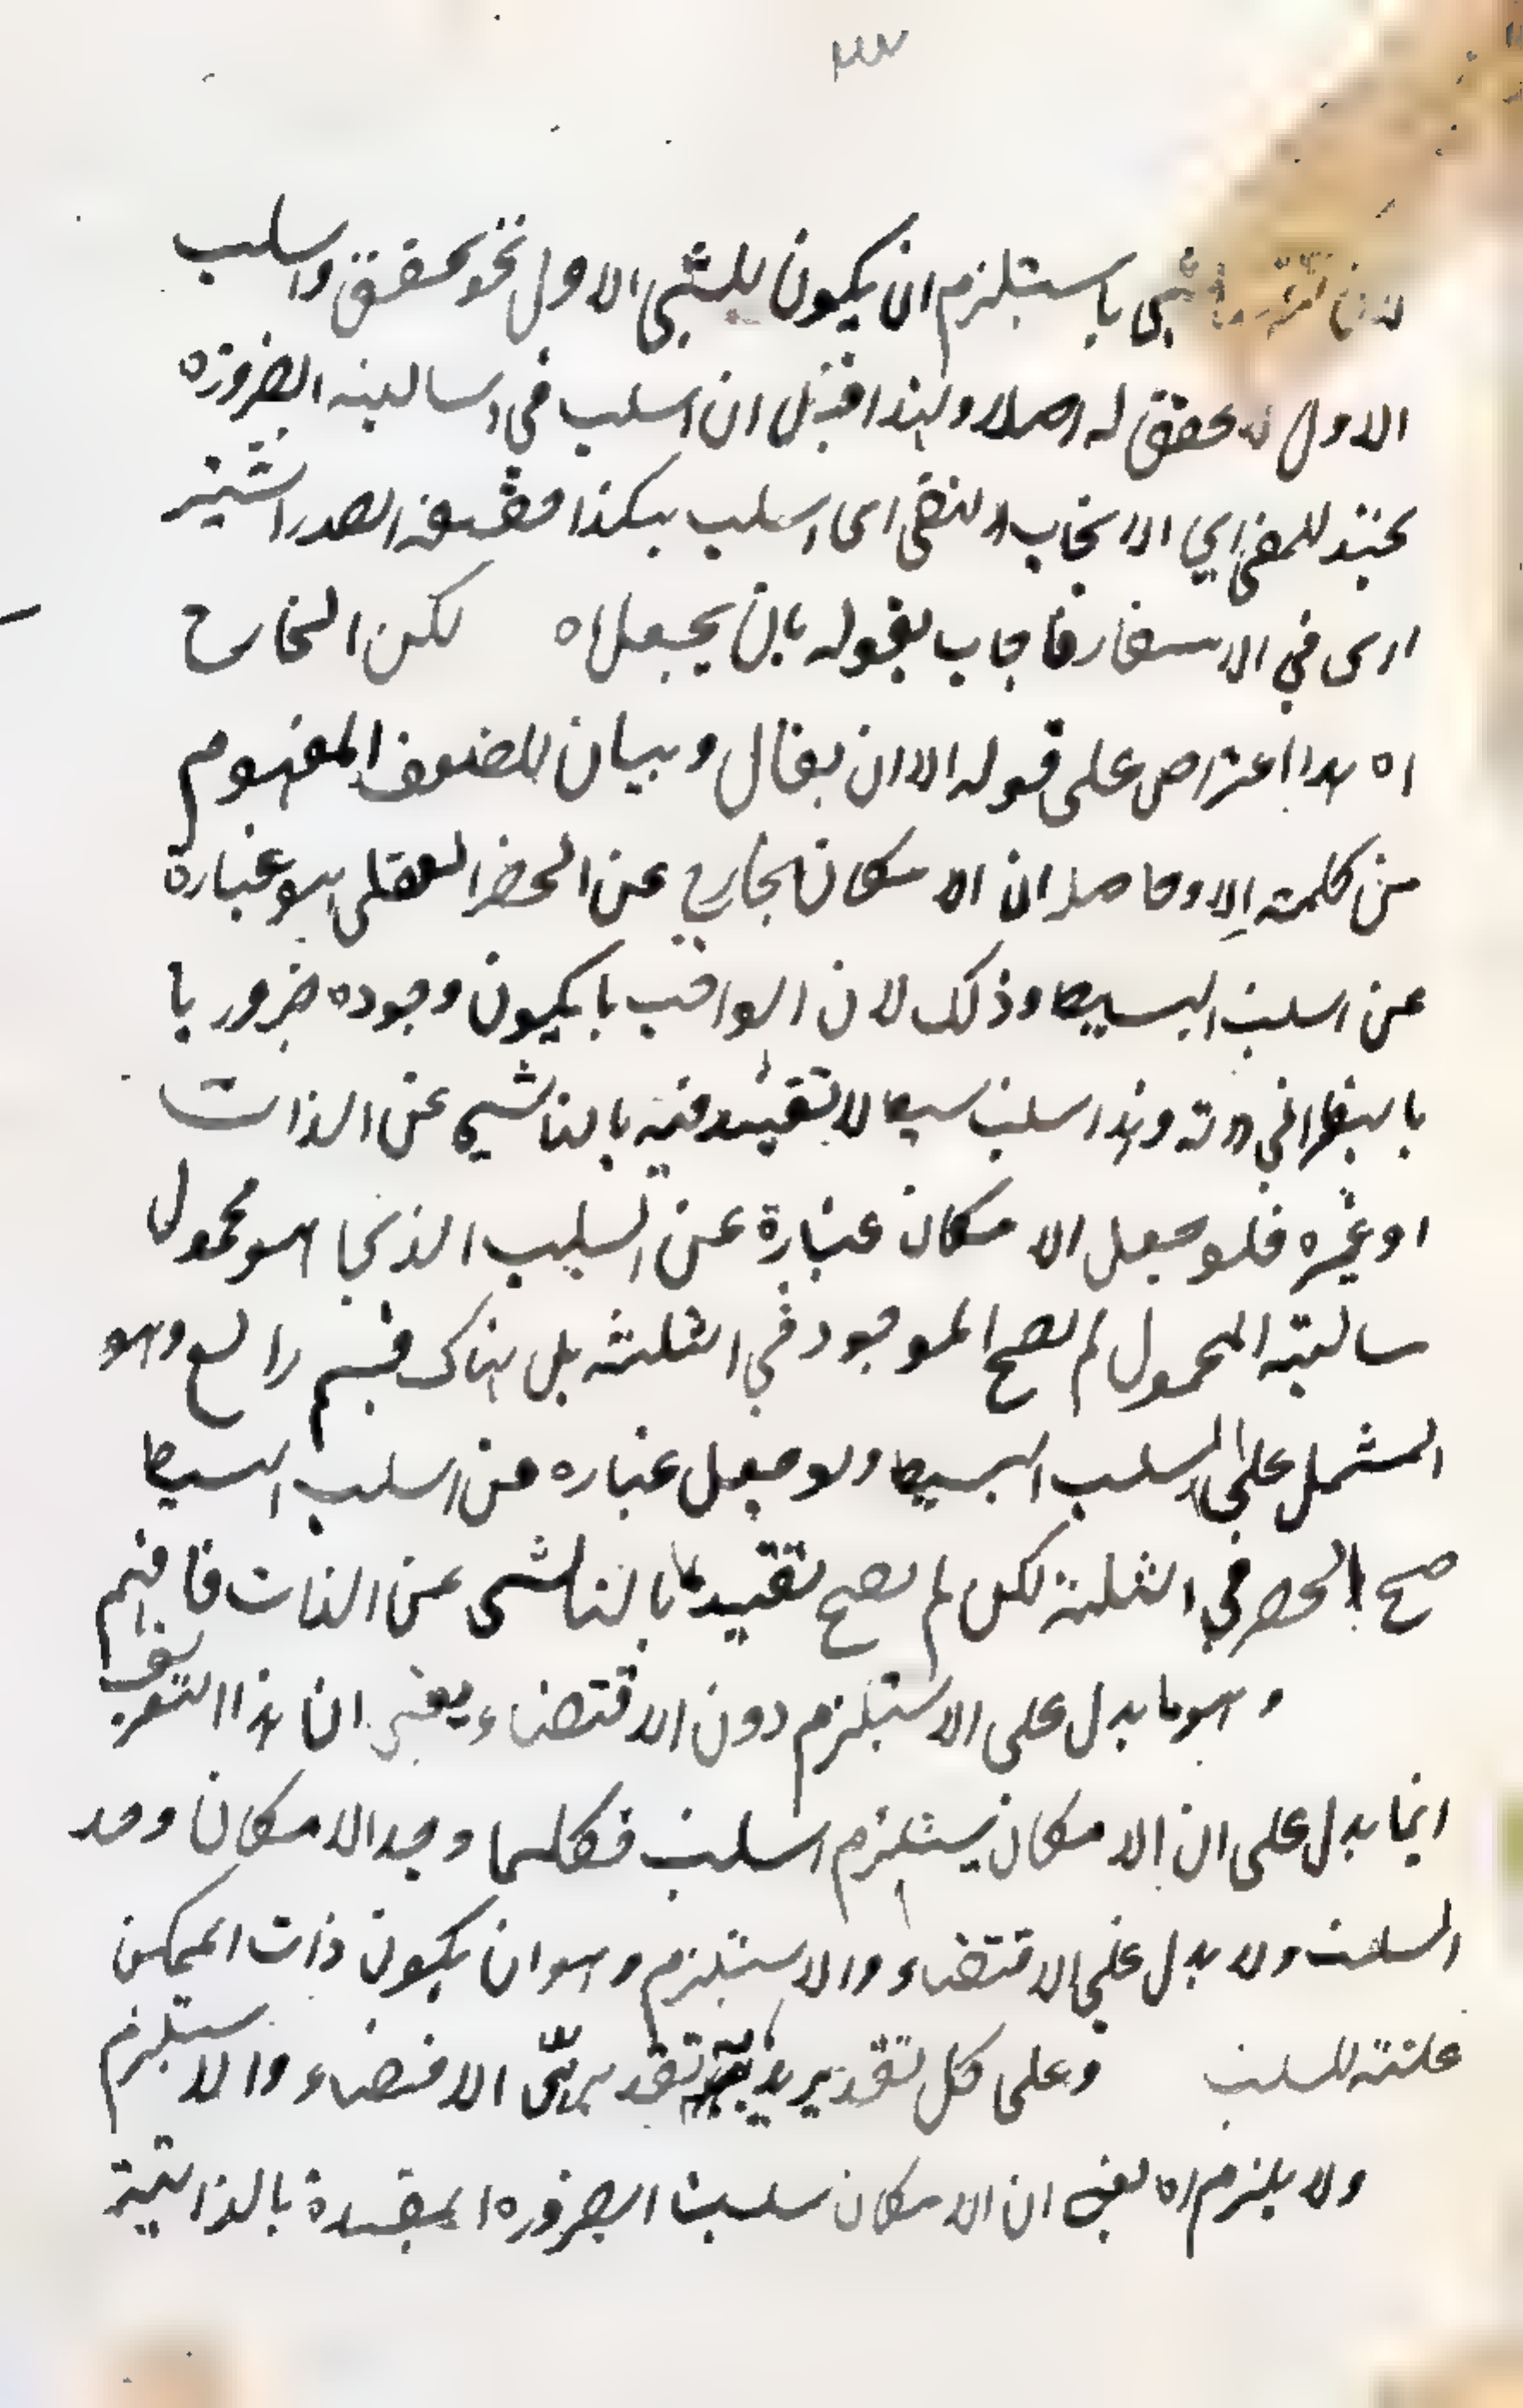 ٣٣
لان شي يستلزم ان يكون للشي الاول نحو تحقق والسلب
الاول لا تحقق له اصلا ولهذا قيل ان السلب في السالبة الضرورة
اي الايجاب والنفي اي السلب هكذا حققه الصدر الشير
ازى في الاسفار فاجاب بقوله بان يجعل اه لكن الخارج
اه هذا اعتراض على قوله الا ان يقال وبيان للضعف المفهوم
من كلمة الا وحاصله ان الامكان الخارج عن الحصر العقلي هو عبارة
عن السلب البسيط وذلك لان الواجب ما يكون وجوده ضروريا
بالنظر الى ذاته وهذا سلب بسيط لا تقييد فيه بالناشي عن الذات
او غيره فلو جعل الامكان عبارة عن السلب الذي هو محمول
سالبة المحمول لم يصح الموجود في الثلثة بل هناك قسم رابع وهو
المشتمل على السلب البسيط ولو جعل عباره عن السلب البسيط
صح الحصر في الثلثة لكن لم يصح تقييده بالناشي عن الذات فافهم
وهو ما يدل على الاستلزم دون الاقتضاء يعني ان هذا التعريف
انما يدل على ان الامكان يستلزم السلب فكلما وجد الامكان وجد
السلب ولا يدل على الاقتضاء والاستلزم وهو ان يكون ذات الممكن
علته للسلب وعلى كل تقدير تقديري الاقتضاء والاستلزم
ولا يلزم اه يعني ان الامكان سلب الضروره المقيدة بالذاتية